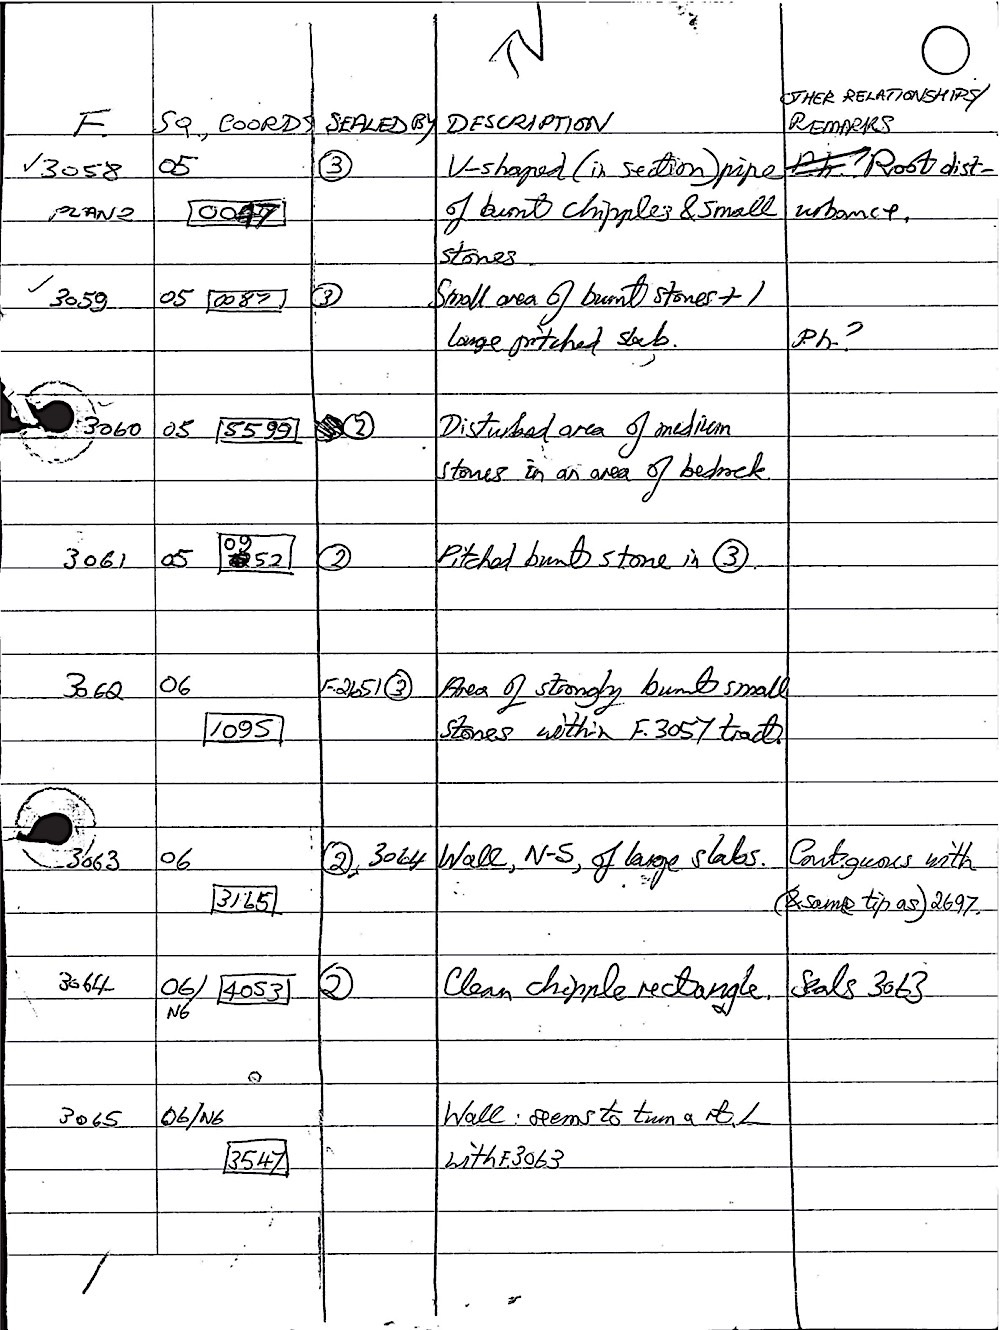 OTHER RELATIONSHIPS/
F. SQ., COORDS SEALED BY DESCRIPTION REMARKS
✓3058 05 ③ V-shaped (in section) pipe P.h.? Root dist-
PLAN 2 0097 of burnt chipples & small urbance.
stones.
✓3059 05 0087 ③ Small area of burnt stones + 1
large pitched slab. Ph?
3060 05 5599 ② Disturbed area of medium
stones in an area of bedrock.
09
3061 05 52 ② Pitched burnt stone in ③.
3062 06 F.2651 ③ Area of strongly burnt small
1095 stones within F.3057 tract.
3063 06 ②, 3064 Wall, N-S, of large slabs. Contiguous with
3165 (& same tip as) 2697.
3064 06/ 4053 ② Clean chipple rectangle. Seals 3063
N6
3065 06/N6 Wall: seems to turn a rt. ∠
3547 with F.3063